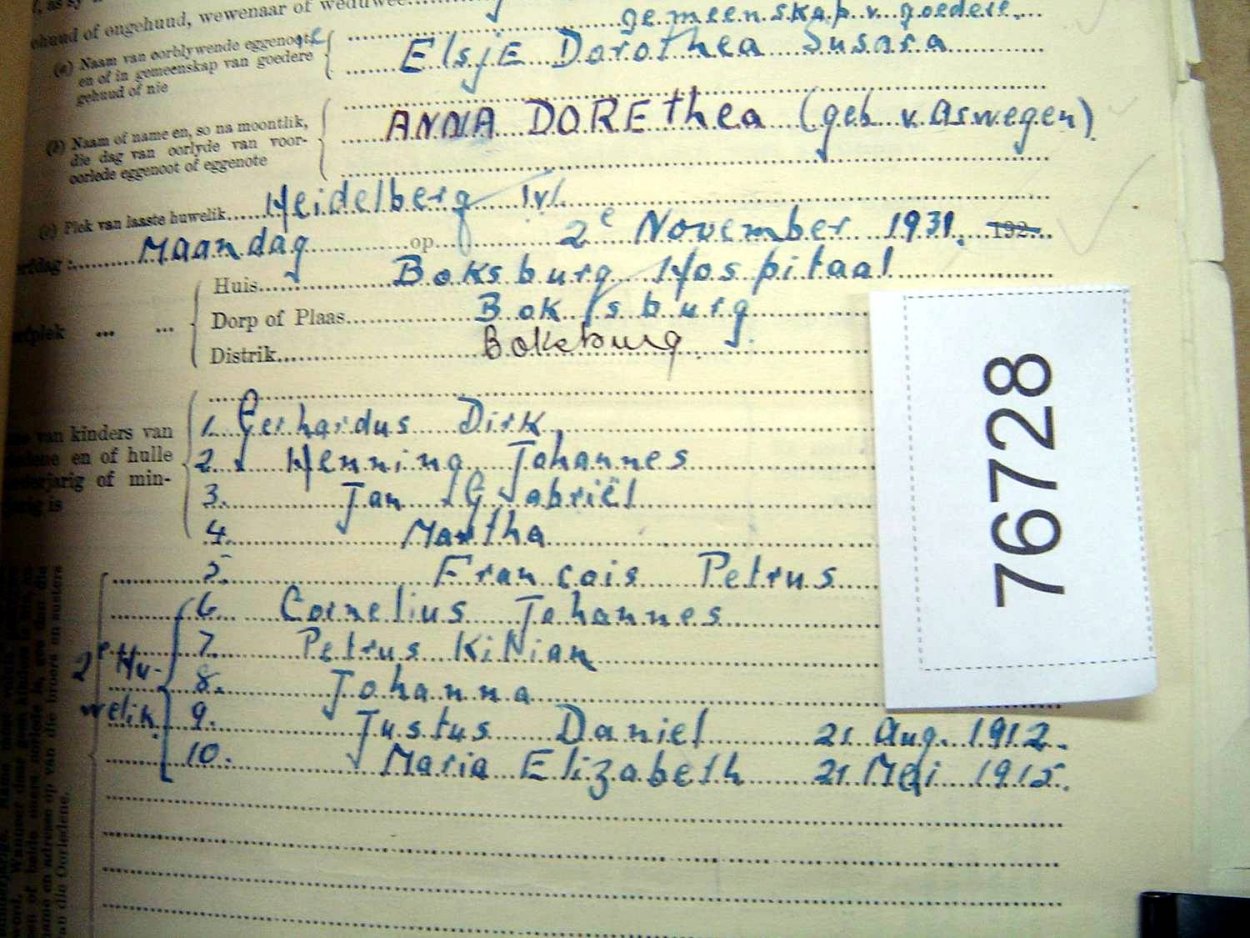 ehuud of ongehuud, wewenaar of weduwee
gemeenskap v. goedere.
(a) Naam van oorblywende eggenoote
en of in gemeenskap van goedere
gehuud of nie
ElsjE Dorothea Susara
(b) Naam of name en, so na moontlik,
die dag van oorlyde van voor-
oorlede eggenoot of eggenote
ANNA DOREthea (geb v. Aswegen)
(c) Plek van laaste huwelik Heidelberg Tvl.
erfdag: Maandag op 2e November 1931. 192
Huis Boksburg Hospitaal
Dorp of Plaas Boksburg
erfplek ... ...
Distrik Boksburg
van kinders van
en of hulle
of min-
is
1. Gerhardus Dirk
2. Henning Johannes
3. Jan Gabriël
4. Martha
5. Francois Petrus
6. Cornelius Johannes
7. Petrus KiNian
2e Hu-
welik
8. Johanna
9. Justus Daniel 21 Aug. 1912.
10. Maria Elizabeth 21 Mei 1915.
76728